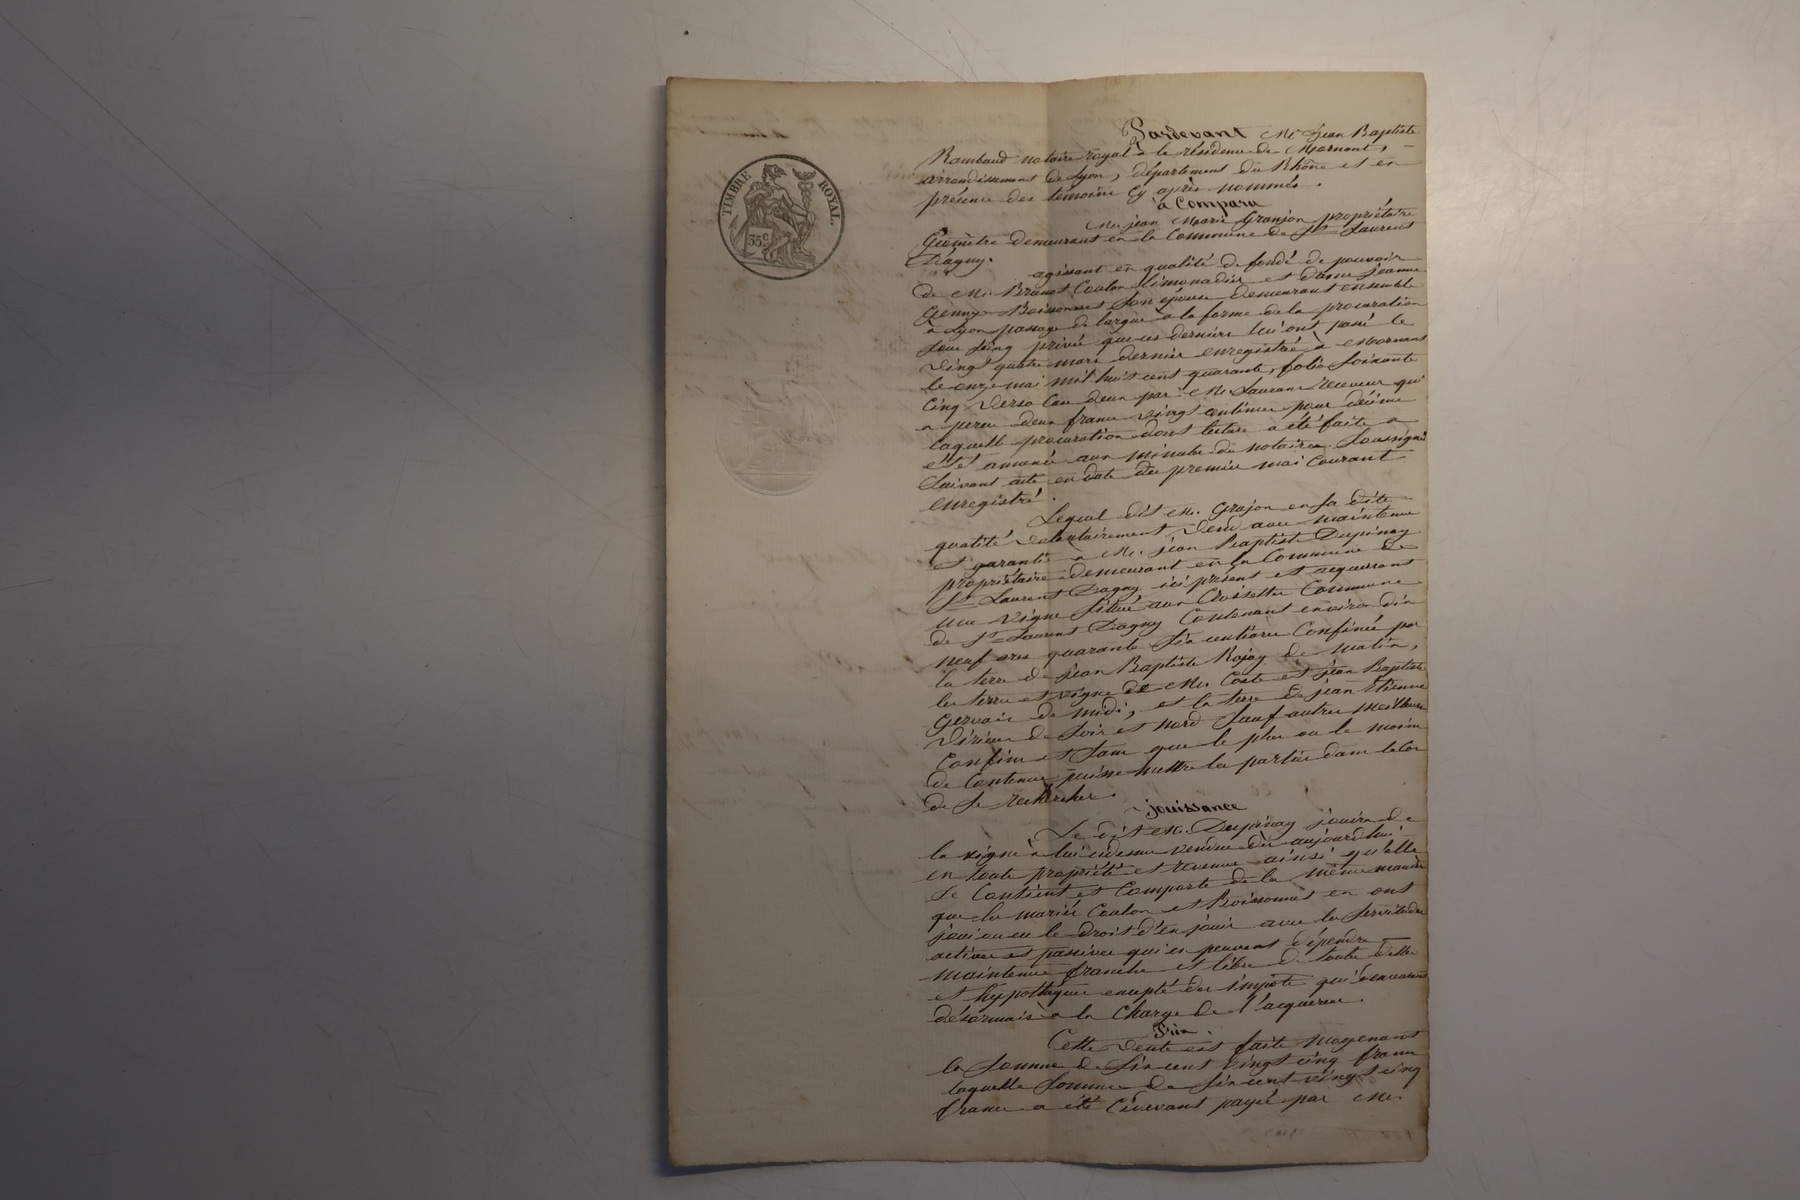 TIMBRE ROYAL
35c
Pardevant Me Jean Baptiste
Rambaud notaire royal à la résidence de Mornant,
arrondissement de Lyon, département du Rhône et en
présence des témoins cy après nommés.
à Comparu
Mr. jean Marie Granjon propriétaire
Géomètre demeurant en la Commune de St Laurent
Dagny.
agissant en qualité de fondé de pouvoir
de Mr. Benoit Coulon limonadier et dame jeanne
jenny Boissonnet son épouse demeurant ensemble
à Lyon passage de l'argue à la forme de la procuration
sous seing privé que ces derniers lui ont passé le
vingt quatre mars dernier enregistré à Mornant
le onze mai mil huit cent quarante, folio soixante
cinq verso Case deux par Mr. Laurent receveur qui
a perçu deux francs vingt centimes pour décime
laquelle procuration dont lecture a été faite a
été annexée aux minutes du notaire soussigné
suivant acte en date du premier mai Courant
enregistré.
Lequel dit Mr. Grajon en sa dite
qualité volontairement vend avec maintenue
et garantie a Mr. jean Baptiste Dupinay
propriétaire demeurant en la Commune de
St Laurent Dagny ici présent et acquerrant
une vigne située aux Croisettes Commune
de St Laurent Dagny Contenant environ dix
neuf ares quarante six centiares Confinée par
la terre de jean Baptiste Rojay de matin,
les terre et vigne de Mr. Coste et jean Baptiste
Gervais de midi, et la terre de jean Etienne
de soir et nord sauf autres meilleurs
Confins et sans que le plus ou le moins
de Contenue puisse mettre les parties dans le Cas
de se rechercher.
jouissance
Le dit Mr. Dupinay jouira de
la vigne à lui cidessus vendue dès aujourd'hui
en toute propriété et revenus ainsi qu'elle
se Contient et Comporte de la même manière
que les mariés Coulon et Boissonnet en ont
joui ou eu le droit d'en jouir avec les servitudes
actives et passives qui en peuvent dépendre
maintenue franche et libre de toute dette
et hypothèque excepté des impôts qui
désormais a la Charge de l'acquereur.
Prix.
Cette vente est faite moyenant
la somme de six cent vingt cinq francs
laquelle somme de six cent vingt cinq
francs a été Cidevant payée par Mr.